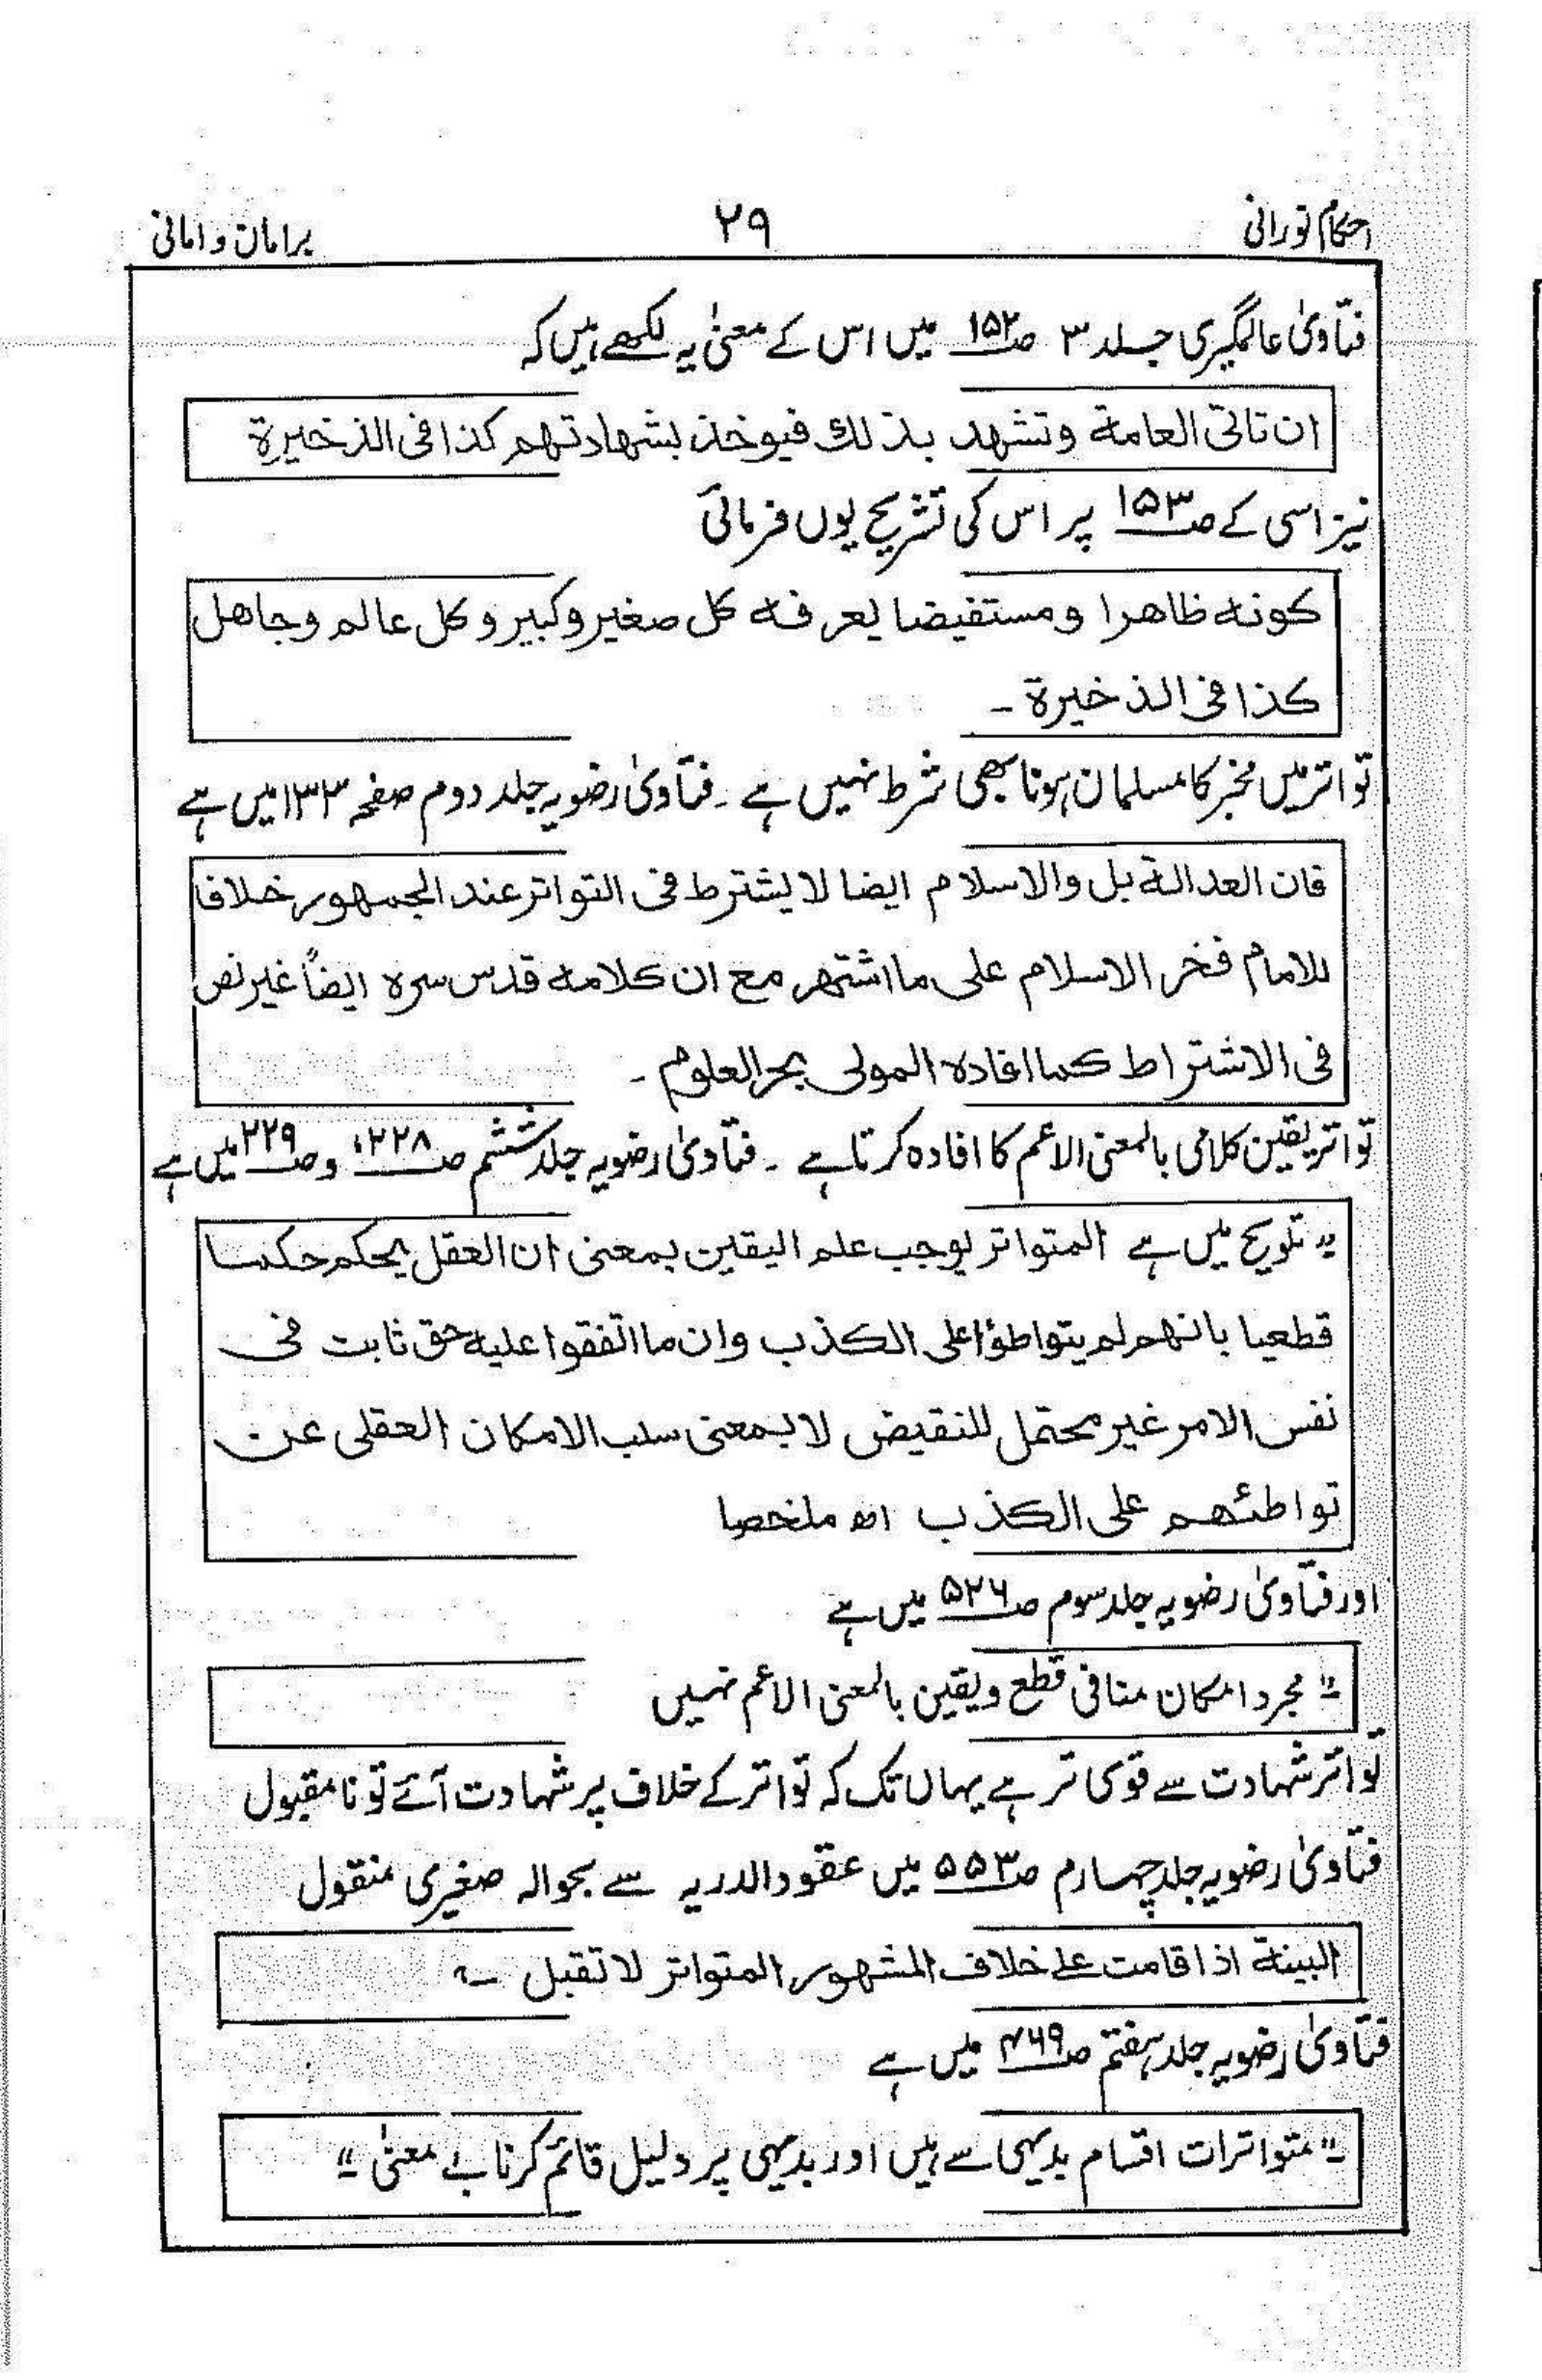 احکام نورانی ۲۹ برامان و امانی
فتاویٰ عالمگیری جلد ۳ صـ۱۵۲ میں اس کے معنیٰ یہ لکھے ہیں کہ
ان تاتی العامة وتشهد بذلك فيوخذ بشهادتهم كذا في الذخيرة
نیز اسی کے صـ۱۵۳ پر اس کی تشریح یوں فرمائی
كونه ظاهرا ومستفيضا يعرفه كل صغير وكبير وكل عالم وجاهل
كذا في الذخيرة ۔
تواتر میں مخبر کا مسلمان ہونا بھی شرط نہیں ہے ۔ فتاویٰ رضویہ جلد دوم صفحہ ۱۳۲ میں ہے
فان العدالة بل والاسلام ايضا لا يشترط في التواتر عند الجمهور خلافا
للامام فخر الاسلام على ما اشتهر مع ان كلامه قدس سره ايضاً غير نص
في الاشتراط كما افاده المولى بحر العلوم ۔
تواتر یقین کلامی بالمعنی الاعم کا افادہ کرتا ہے ۔ فتاویٰ رضویہ جلد ششم صـ۲۲۸، و صـ۲۲۹ میں ہے
" تلویح میں ہے المتواتر يوجب علم اليقين بمعنى ان العقل يحكم حكما
قطعيا بانهم لم يتواطؤا على الكذب وان ما اتفقوا عليه حق ثابت في
نفس الامر غير محتمل للنقيض لا بمعنى سلب الامكان العقلى عن
تواطئهم على الكذب اھ ملخصا
اور فتاویٰ رضویہ جلد سوم صـ۵۲۶ میں ہے
" مجرد امکان منافی قطع و یقین بالمعنی الاعم نہیں
تواتر شہادت سے قوی تر ہے یہاں تک کہ تواتر کے خلاف پر شہادت آئے تو نامقبول
فتاویٰ رضویہ جلد چہارم صـ۵۵۳ میں عقود الدریہ سے بحوالہ صغیری منقول
البينة اذا قامت على خلاف المشهور المتواتر لا تقبل
فتاویٰ رضویہ جلد ہفتم صـ۴۶۹ میں ہے
" متواترات اقسام بدیہی سے ہیں اور بدیہی پر دلیل قائم کرنا بے معنیٰ "